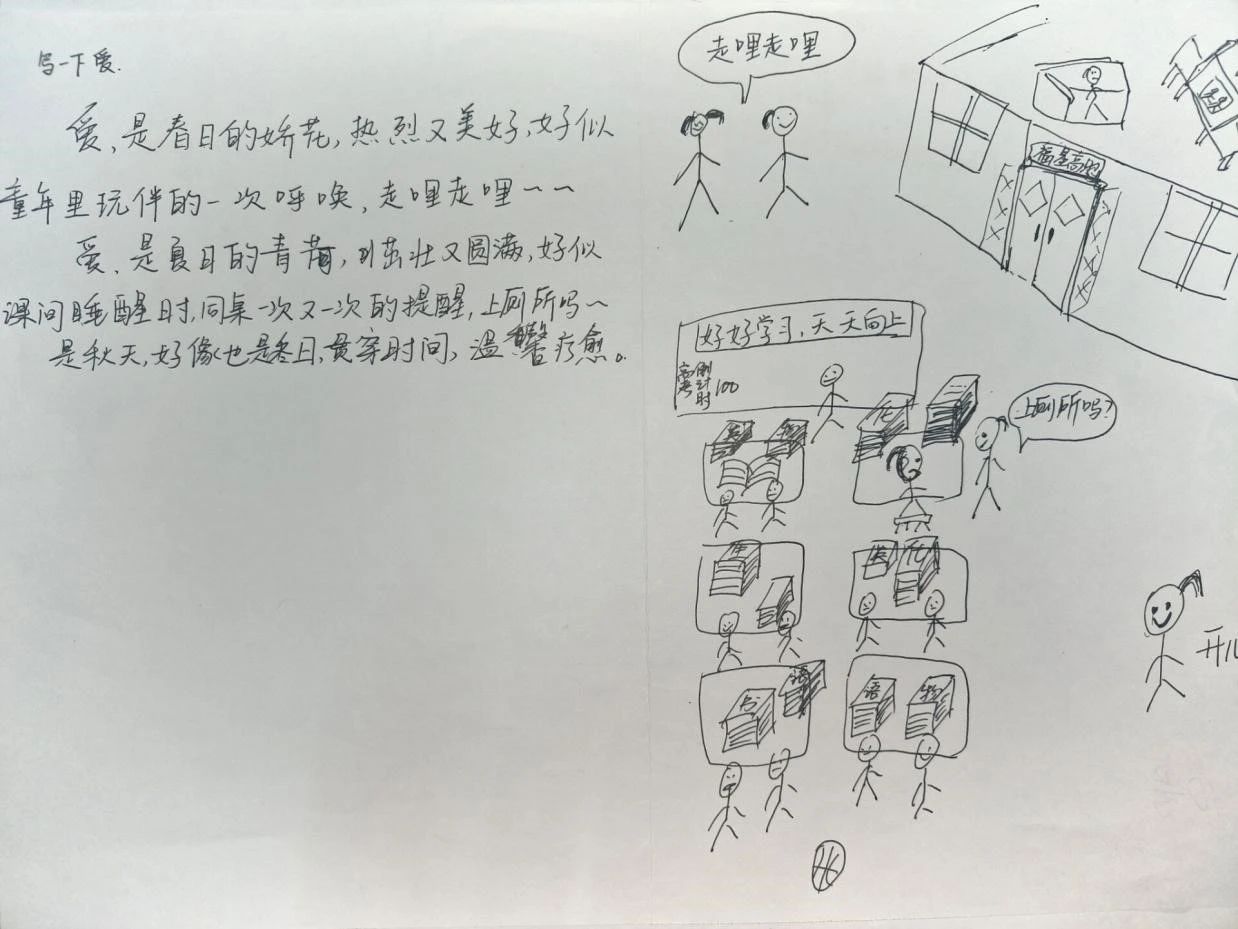 写一下爱.
爱,是春日的娇花,热烈又美好,好似
童年里玩伴的一次呼唤,走哩走哩~~
爱,是夏日的青荷,茁壮又圆满,好似
课间睡醒时,同桌一次又一次的提醒,上厕所吗~
是秋天,好像也是冬日,贯穿时间,温馨疗愈。
走哩走哩
好好学习,天天向上
高考倒计时100
上厕所吗?
英
物
化
生
英
化
语
语
物